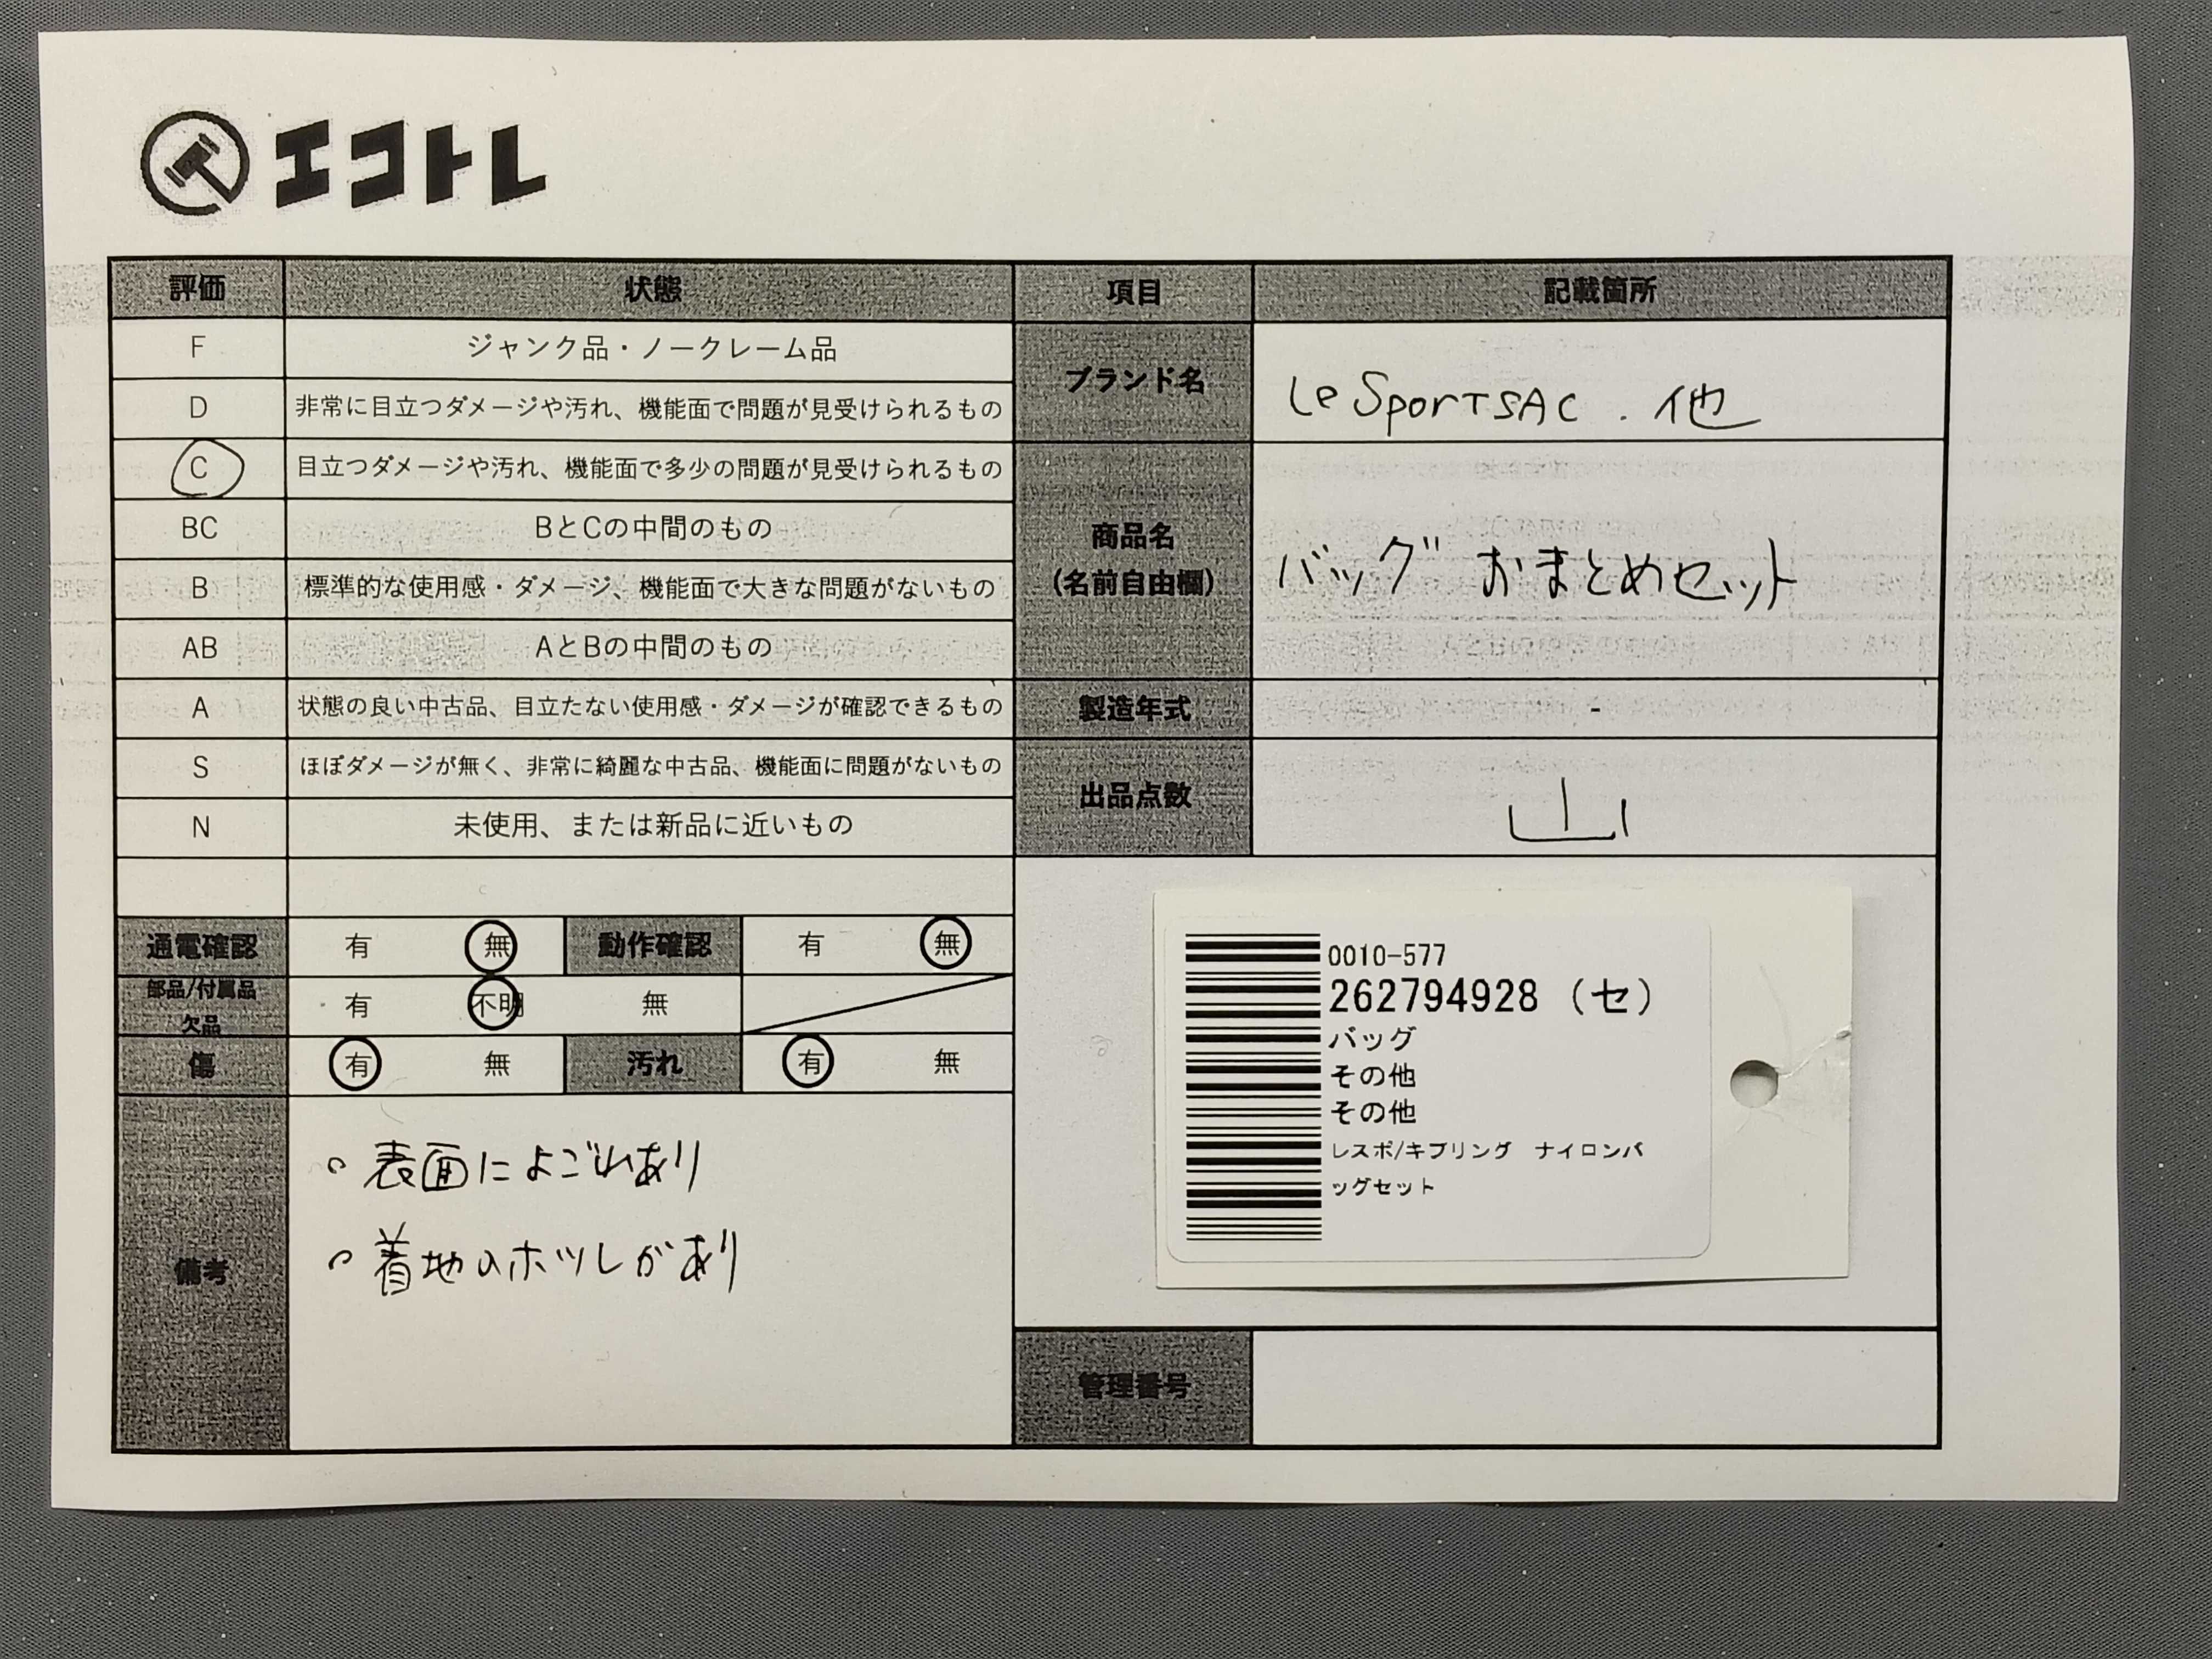 エコトレ
評価 状態 項目 記載箇所
F ジャンク品・ノークレーム品
D 非常に目立つダメージや汚れ、機能面で問題が見受けられるもの
C 目立つダメージや汚れ、機能面で多少の問題が見受けられるもの
BC BとCの中間のもの
B 標準的な使用感・ダメージ、機能面で大きな問題がないもの
AB AとBの中間のもの
A 状態の良い中古品、目立たない使用感・ダメージが確認できるもの
S ほぼダメージが無く、非常に綺麗な中古品、機能面に問題がないもの
N 未使用、または新品に近いもの
通電確認 有 無 動作確認 有 無
部品/付属品
欠品 有 不明 無
傷 有 無 汚れ 有 無
備考
・表面によごれあり
・着地のホツレがあり
ブランド名 LeSportSAC.他
商品名
(名前自由欄) バッグ おまとめセット
製造年式 -
出品点数
0010-577
262794928 (セ)
バッグ
その他
その他
レスポ/キプリング ナイロンバ
ッグセット
管理番号